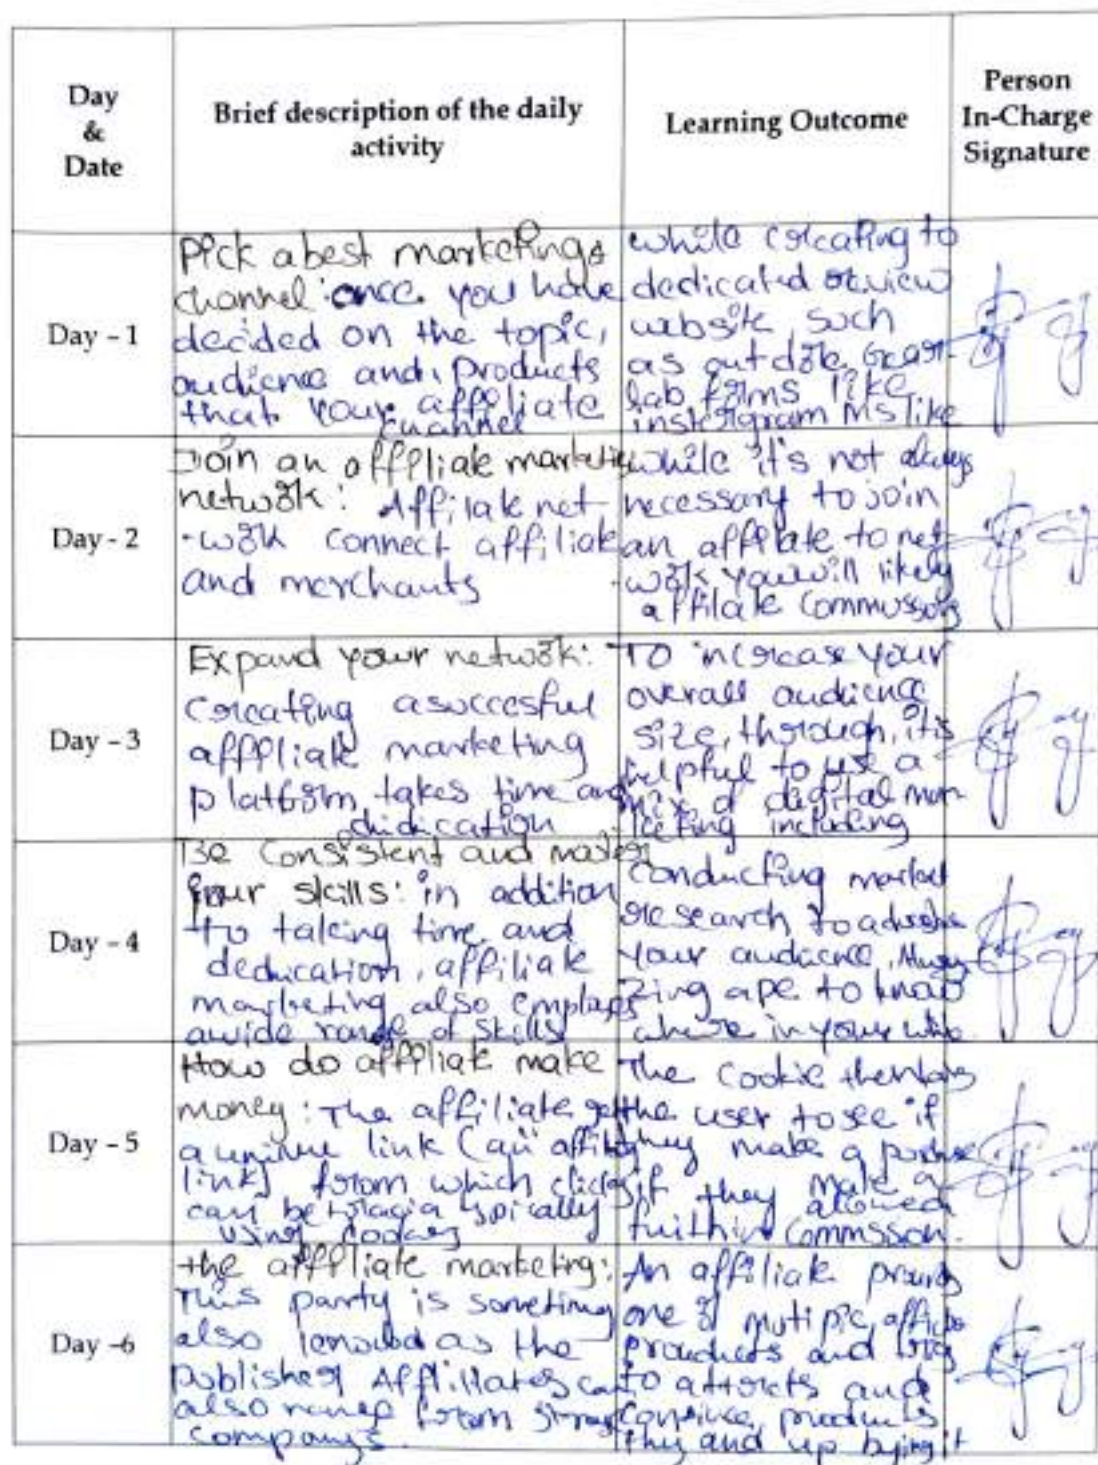 Day
&
Date
Brief description of the daily
activity
Learning Outcome
Person
In-Charge
Signature
Day - 1
Pick a best marketing
channel once you have
decided on the topic,
audience and products
that your affiliate
channel
while creating to
dedicated review
website such
as out dor Gear
lab forms like
instagram Ms like
Day - 2
Join an affiliate marketing
network: Affilak net
-work connect affiliate
and merchants
while it's not always
necessary to join
an affilate to net
-work you will likely
affilate Commussons
Day - 3
Expand your network:
Creating a succesful
affiliate marketing
platform takes time and
didication
To increase your
overall audience
size, through, it is
helpful to use a
mix of digital mar-
keting including
Day - 4
Be Consistent and master
your skills: in addition
to taking time and
deducation, affiliate
marketing also employes
a wide range of skills
Conducting market
research to
your audience,
zing ape to know
where in your
Day - 5
How do affiliate make
money: The affiliate gets
a link (an affiliate
link) from which clicks
can be typically
using cookies
The cookie
the user to see if
they make a purchase
if they make a
allowed
Commsson.
Day -6
the affiliate marketing:
This party is sometimes
also knowed as the
publisher Affilliates can
also range from
companys.
An affiliate
one or
products and
to attrects and
convince products
they and up bying it